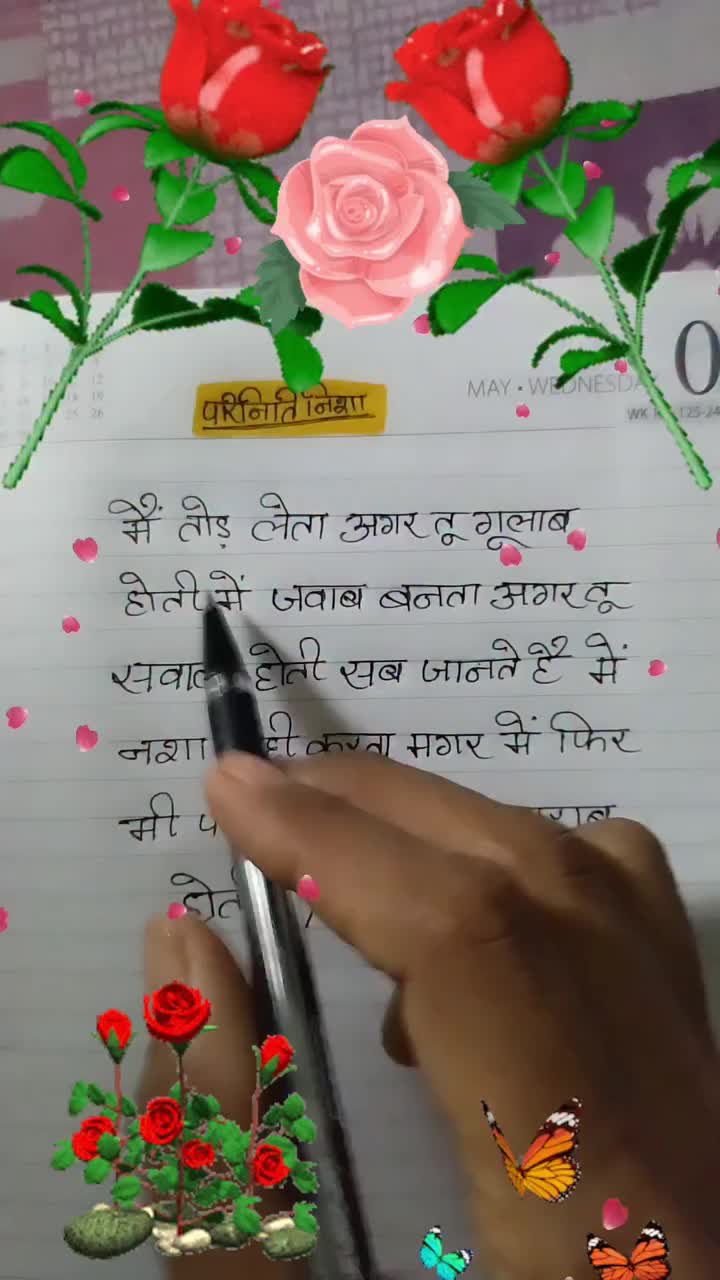 MAY • WEDNESDAY 0
परिनिति निशा
मैं तोड़ लेता अगर तू गूलाब
होती में जवाब बनता अगर तू
सवाल होती सब जानते है में
नशा ही करता मगर में फिर
मी
होती